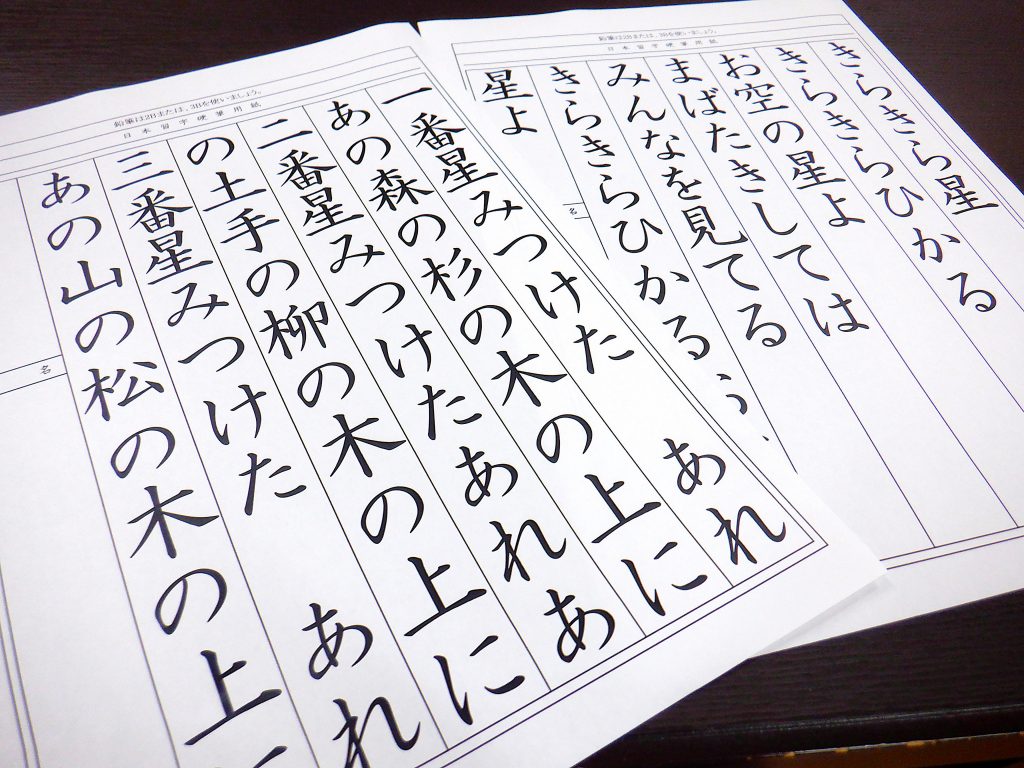 鉛筆は2Bまたは、3Bを使いましょう。
日本習字硬筆用紙
きらきら星
きらきらひかる
お空の星よ
まばたきしては
みんなを見てる
きらきらひかる
星よ
名
鉛筆は2Bまたは、3Bを使いましょう。
日本習字硬筆用紙
一番星みつけた　あれ
あの森の杉の木の上に
二番星みつけたあれあ
の土手の柳の木の上に
三番星みつけた　あれ
あの山の松の木の上
名